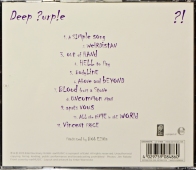 Deep Purple
?!
1. A Simple Song
2. Weirdistan
3. Out of Hand
4. Hell to Pay
5. Bodyline
6. Above and Beyond
7. Blood from a Stone
8. Uncommon Man
9. Après Vous
10. All the Time in the World
11. Vincent Price
Produced by Bob Ezrin